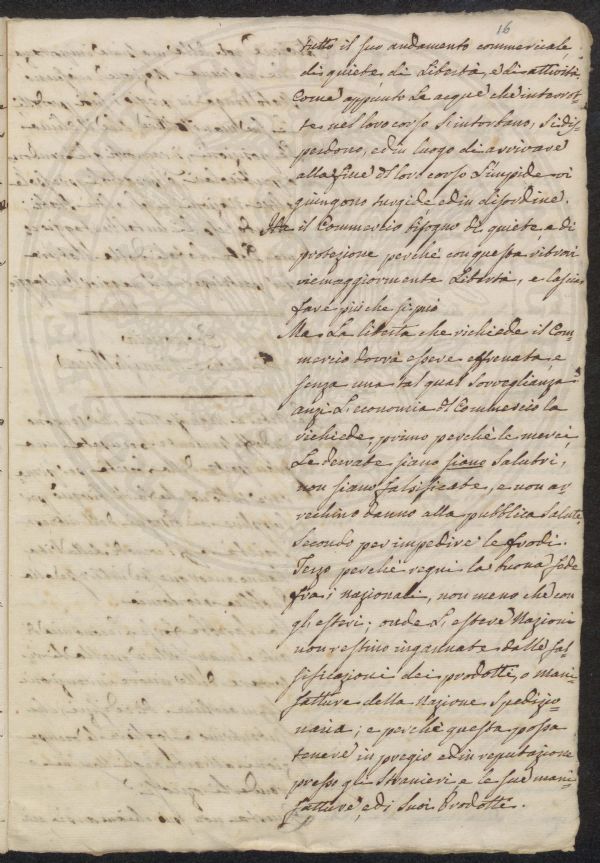 16
tutto il suo andamento commerciale,
di quiete, di Libertà, e di attività
Come appunto Le acque che interot=
te nel loro corso S'intorbano, si dis=
perdono, ed in luogo di arrivare
alla fine del loro corso Limpide vi
giungono turgide ed in disordine.
il Commercio bisogno di quiete e di
protezione perchè con questa ritrovi
viemaggiormente Libertà, e lascia
fare più che si può
Ma La libertà che richiede il Com=
mercio dovrà essere effrenata, e
senza una tal qual Sorveglianza?
anzi L'economia del Commercio la
richiede, primo perchè le merci,
Le derrate siano siano Salubri,
non siano falsificate, e non ar
rechino danno alla pubblica Salute,
Secondo per impedire le frodi.
Terzo perchè regni la buona fede
fra i nazionali, non meno che con
gli esteri; onde L'estere Nazioni
non restino ingannate dalle fal
sificazioni dei prodotti, o mani=
fatture della Nazione Spedizio=
naria; e perchè questa possa
tenere in pregio ed in reputazione
presso gli Stranieri e le sue mani
fatture, e di Suoi Prodotti.